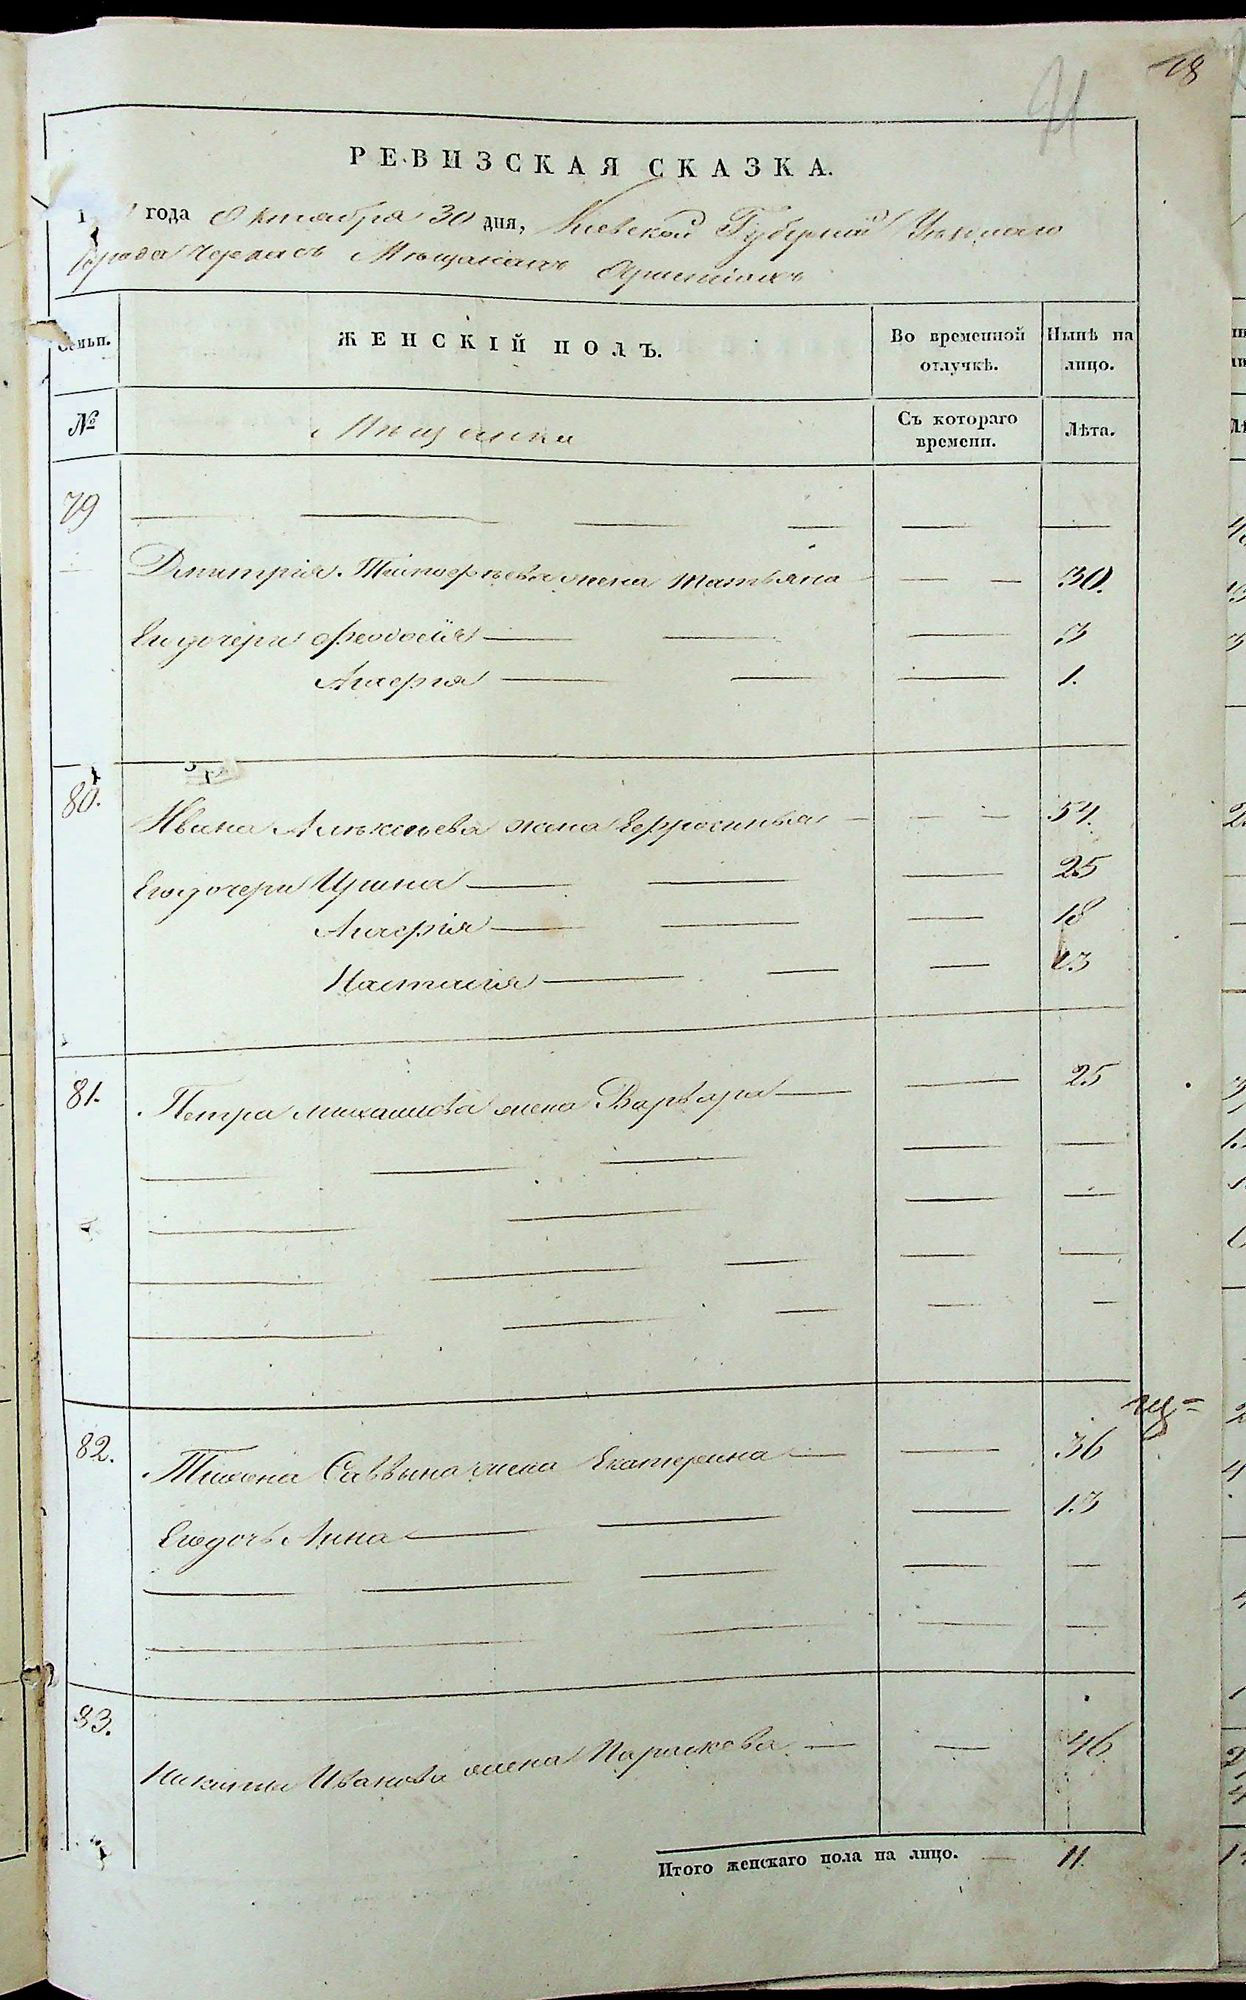 18
РЕВИЗСКАЯ СКАЗКА.
года Октября 30 дня, Киевской Губерніи Уезнаго
города Черкасъ Мещанахъ Христіянъ
Семьи. ЖЕНСКІЙ ПОЛЪ. Во временной отлучкѣ. Нынѣ на лицо.
№ Мещанки Съ котораго времени. Лѣта.
79
Дмитрія Тимофеева жена Татьяна 30.
Его дочери Феодосія 3
Агафія 1.
80.
Ивана Алексеева жена Ефросинья 54.
Его дочери Ирина 25
Агафія 18
Настасія 13
81. Петра Михаилова жена Варвара 25
82. Тихона Саввына жена Екатерина 36
Его дочь Анна 13
83.
Никиты Иванова жена Параскева 46
Итого женскаго пола на лицо. 11.